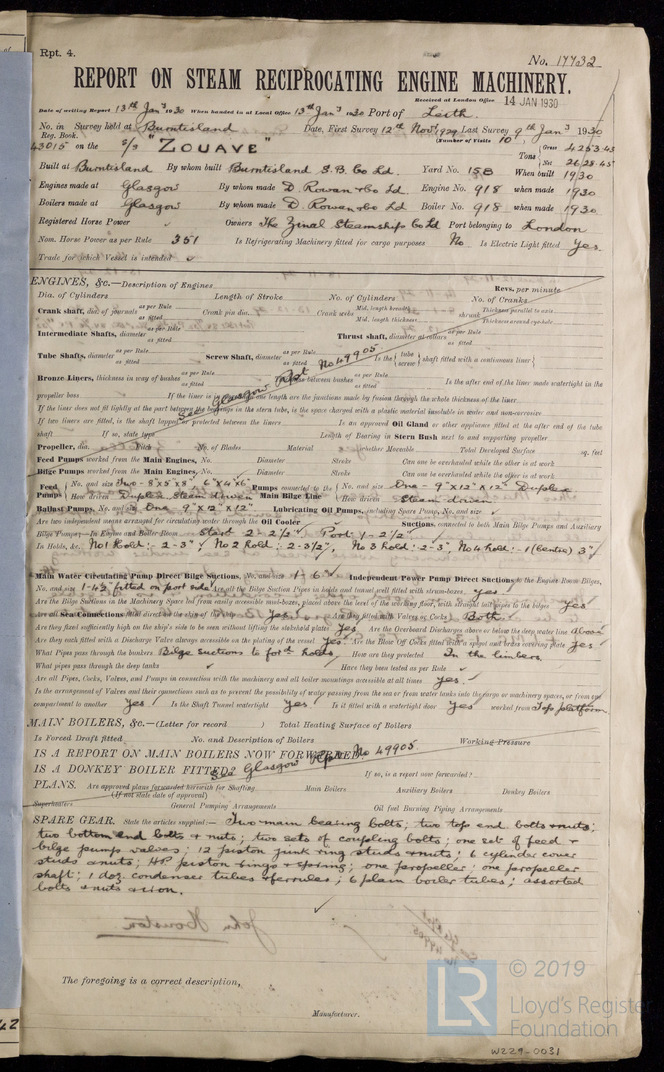 Rpt. 4.
No. 17732
REPORT ON STEAM RECIPROCATING ENGINE MACHINERY.
Received at London Office 14 JAN 1930
Date of writing Report 13th Jany 1930 When handed in at Local Office 13th Jany 1930 Port of Leith.
No. in Reg. Book. Survey held at Burntisland Date, First Survey 12th Novr 1929 Last Survey 9th Jany 1930
(Number of Visits 10)
43015 on the S/S "ZOUAVE" Tons Gross 4253.45 Net 2628.45
Built at Burntisland By whom built Burntisland S.B. Co Ld. Yard No. 158 When built 1930
Engines made at Glasgow By whom made D. Rowan & Co Ld Engine No. 918 when made 1930
Boilers made at Glasgow By whom made D. Rowan & Co Ld Boiler No. 918 when made 1930
Registered Horse Power Owners The Zinal Steamships Co Ld Port belonging to London
Nom. Horse Power as per Rule 351 Is Refrigerating Machinery fitted for cargo purposes No Is Electric Light fitted Yes
Trade for which Vessel is intended
ENGINES, &c.—Description of Engines Revs. per minute
Dia. of Cylinders Length of Stroke No. of Cylinders No. of Cranks
Crank shaft, dia. of journals as per Rule as fitted Crank pin dia. Crank webs Mid. length breadth Mid. length thickness shrunk Thickness parallel to axis Thickness around eye-hole
Intermediate Shafts, diameter as per Rule as fitted Thrust shaft, diameter at collars as per Rule as fitted
Tube Shafts, diameter as per Rule as fitted Screw Shaft, diameter as per Rule as fitted Is the { tube screw } shaft fitted with a continuous liner {
See Glasgow Rpt No 49905
Bronze Liners, thickness in way of bushes as per Rule as fitted Thickness between bushes as per Rule as fitted Is the after end of the liner made watertight in the
propeller boss If the liner is in more than one length are the junctions made by fusion through the whole thickness of the liner
If the liner does not fit tightly at the part between the bushes in the stern tube, is the space charged with a plastic material insoluble in water and non-corrosive
If two liners are fitted, is the shaft lapped or protected between the liners Is an approved Oil Gland or other appliance fitted at the after end of the tube
shaft If so, state type Length of Bearing in Stern Bush next to and supporting propeller
Propeller, dia. Pitch No. of Blades Material whether Moveable Total Developed Surface sq. feet
Feed Pumps worked from the Main Engines, No. Diameter Stroke Can one be overhauled while the other is at work
Bilge Pumps worked from the Main Engines, No. Diameter Stroke Can one be overhauled while the other is at work
Feed Pumps { No. and size Two - 8"x5"x8", 6"x4"x6" Pumps connected to the Main Bilge Line { No. and size One - 9"x12"x12" Duplex
How driven Duplex Steam Driven How driven Steam driven
Ballast Pumps, No. and size One 9"x12"x12" Lubricating Oil Pumps, including Spare Pump, No. and size
Are two independent means arranged for circulating water through the Oil Cooler Suctions, connected to both Main Bilge Pumps and Auxiliary
Bilge Pumps—In Engine and Boiler Room Starb 2 - 2½" Port: 1 - 2½"
In Holds, &c. No 1 hold: 2-3" No 2 hold: 2-3½", No 3 hold: 2-3" No 4 hold: 1 (centre) 3"
Main Water Circulating Pump Direct Bilge Suctions, No. and size 1-6" Independent Power Pump Direct Suctions to the Engine Room Bilges,
No. and size 1-4½ fitted on port side Are all the Bilge Suction Pipes in holds and tunnel well fitted with strum-boxes Yes
Are the Bilge Suctions in the Machinery Space led from easily accessible mud-boxes, placed above the level of the working floor, with straight tail pipes to the bilges Yes
Are all Sea Connections fitted direct to the skin of the ship Yes Are they fitted with Valves or Cocks Both
Are they fixed sufficiently high on the ship's side to be seen without lifting the stokehold plates Yes Are the Overboard Discharges above or below the deep water line above
Are they each fitted with a Discharge Valve always accessible on the plating of the vessel Yes Are the Blow Off Cocks fitted with a spigot and brass covering plate Yes
What Pipes pass through the bunkers Bilge suctions to for'd holds How are they protected In the limbers.
What pipes pass through the deep tanks Have they been tested as per Rule
Are all Pipes, Cocks, Valves, and Pumps in connection with the machinery and all boiler mountings accessible at all times Yes.
Is the arrangement of Valves and their connections such as to prevent the possibility of water passing from the sea or from water tanks into the cargo or machinery spaces, or from one
compartment to another Yes Is the Shaft Tunnel watertight Yes Is it fitted with a watertight door Yes worked from Top platform
MAIN BOILERS, &c.—(Letter for record ) Total Heating Surface of Boilers
Is Forced Draft fitted No. and Description of Boilers Working Pressure
IS A REPORT ON MAIN BOILERS NOW FORWARDED?
See Glasgow Rpt No 49905
IS A DONKEY BOILER FITTED? If so, is a report now forwarded?
PLANS. Are approved plans forwarded herewith for Shafting Main Boilers Auxiliary Boilers Donkey Boilers
(If not state date of approval)
Superheaters General Pumping Arrangements Oil fuel Burning Piping Arrangements
SPARE GEAR. State the articles supplied:— Two main bearing bolts; two top end bolts & nuts;
two bottom end bolts & nuts; two sets of coupling bolts; one set of feed &
bilge pump valves; 12 piston junk ring studs & nuts; 6 cylinder cover
studs & nuts; HP piston rings & spring; one propeller; one propeller
shaft; 1 doz. condenser tubes & ferrules; 6 plain boiler tubes; assorted
bolts & nuts & iron.
The foregoing is a correct description,
Manufacturer.
LR
© 2019
Lloyd's Register
Foundation
W229-0031